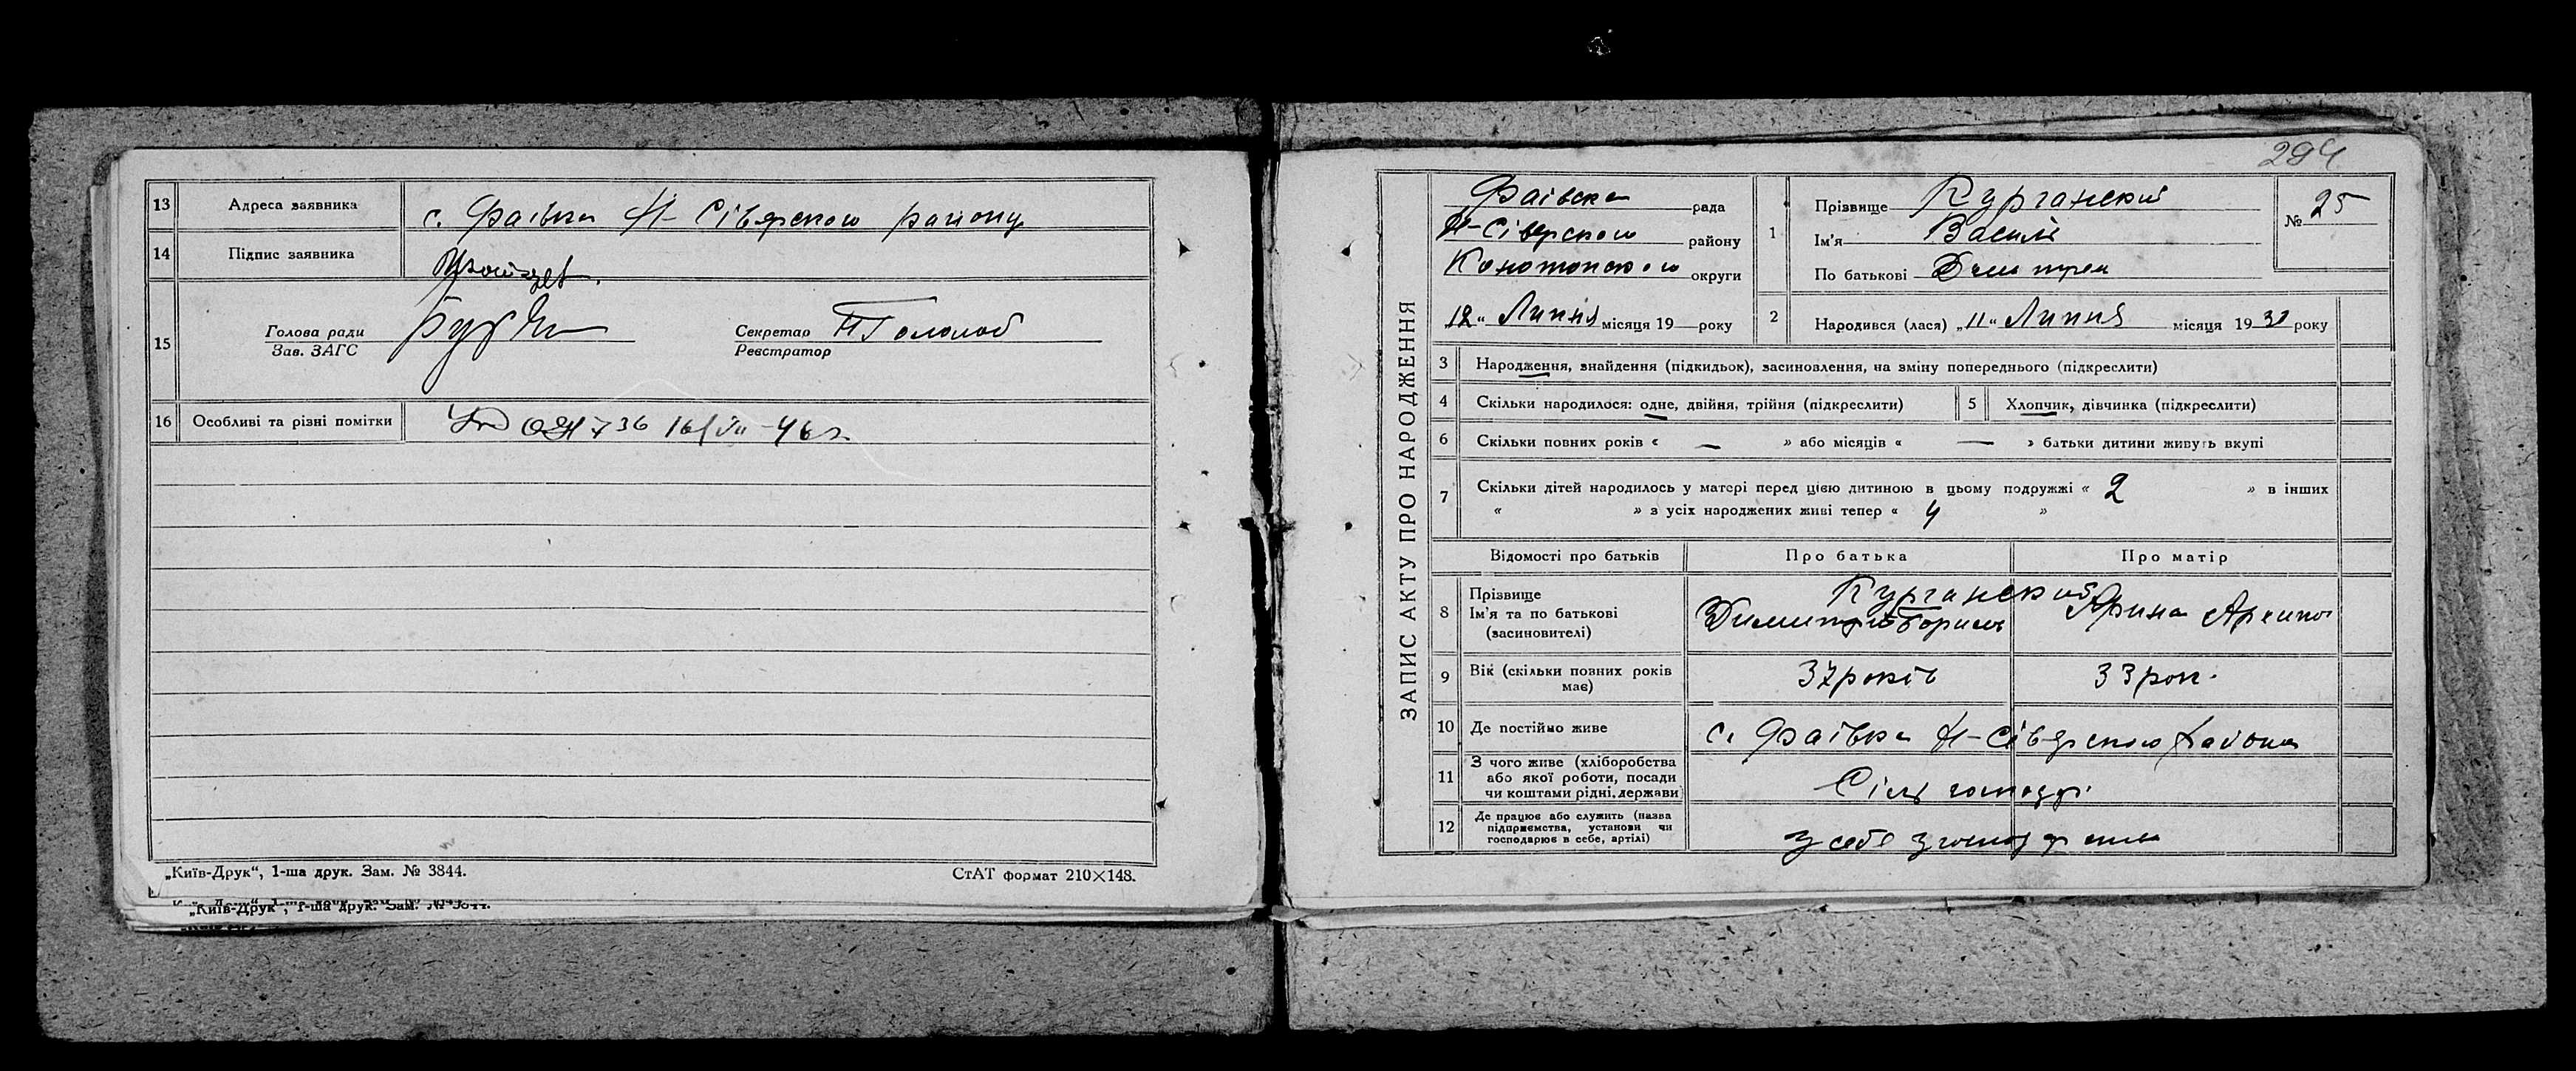 13 Адреса заявника с. Фаівка Н-Сіверского району
14 Підпис заявника
15 Голова ради Секретар
Зав. ЗАГС Реєстратор
16 Особливі та різні помітки 736
„Київ-Друк“, 1-ша друк. Зам. № 3844.
СтАТ формат 210×148.
294
ЗАПИС АКТУ ПРО НАРОДЖЕННЯ
Фаівска рада
Н-Сіверского району
Конотопского округи
„12“ Липня місяця 19 року
1 Прізвище Курганский
Ім'я Василь
По батькові
№ 25
2 Народився (лася) „11“ Липня місяця 1930 року
3 Народження, знайдення (підкидьок), засиновлення, на зміну попереднього (підкреслити)
4 Скільки народилося: одне, двійня, трійня (підкреслити)
5 Хлопчик, дівчинка (підкреслити)
6 Скільки повних років « — » або місяців « — » батьки дитини живуть вкупі
7 Скільки дітей народилось у матері перед цією дитиною в цьому подружжі « 2 » в інших
« » з усіх народжених живі тепер « 4 »
Відомості про батьків Про батька Про матір
8 Прізвище Курганский
Ім'я та по батькові Арина
(засиновителі)
9 Вік (скільки повних років 37 років 33 рок.
має)
10 Де постійно живе с. Фаівка Н-Сіверского района
11 З чого живе (хліборобства
або якої роботи, посади
чи коштами рідні, держави)
12 Де працює або служить (назва
підприємства, установи чи
господарює в себе, артілі)